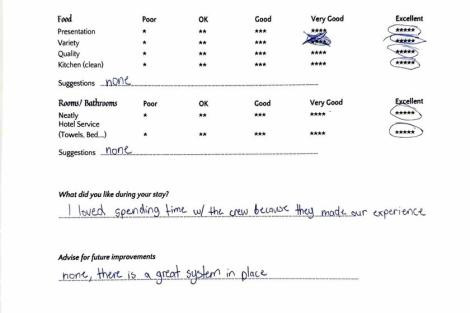 Food Poor OK Good Very Good Excellent
Presentation * ** *** **** *****
Variety * ** *** **** *****
Quality * ** *** **** *****
Kitchen (clean) * ** *** **** *****
Suggestions none
Rooms/ Bathrooms Poor OK Good Very Good Excellent
Neatly * ** *** **** *****
Hotel Service
(Towels, Bed...) * ** *** **** *****
Suggestions none
What did you like during your stay?
I loved spending time w/ the crew because they made our experience
Advise for future improvements
none, there is a great system in place